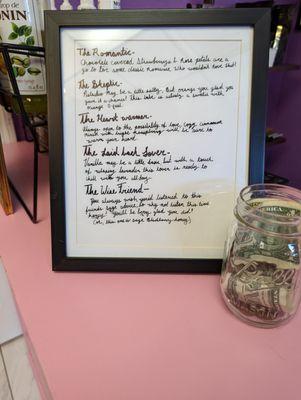 ONIN
The Romantic-
Chocolate covered Strawberrys & Rose petals are a
go to for some classic Romance who wouldn't love that!
The Skeptic-
Pistachio may be a little salty, but orange you glad you
gave it a chance! this latte is salty & subtle with
orange peel.
The Heart warmer-
Always open to the possibility of love, Cozy cinnamon
with light Raspberry will be sure to
warm your heart.
The Laid back Lover-
Vanilla may be a little but with a touch
of relaxing lavender this lover is ready to
chill with you all day.
The Wise Friend-
You always wish you'd listened to this
friends sage advice so why not listen this time
honey? You'll be berry glad you did!
(oh, this one is sage Blackberry honey)
AMERICA
Ball